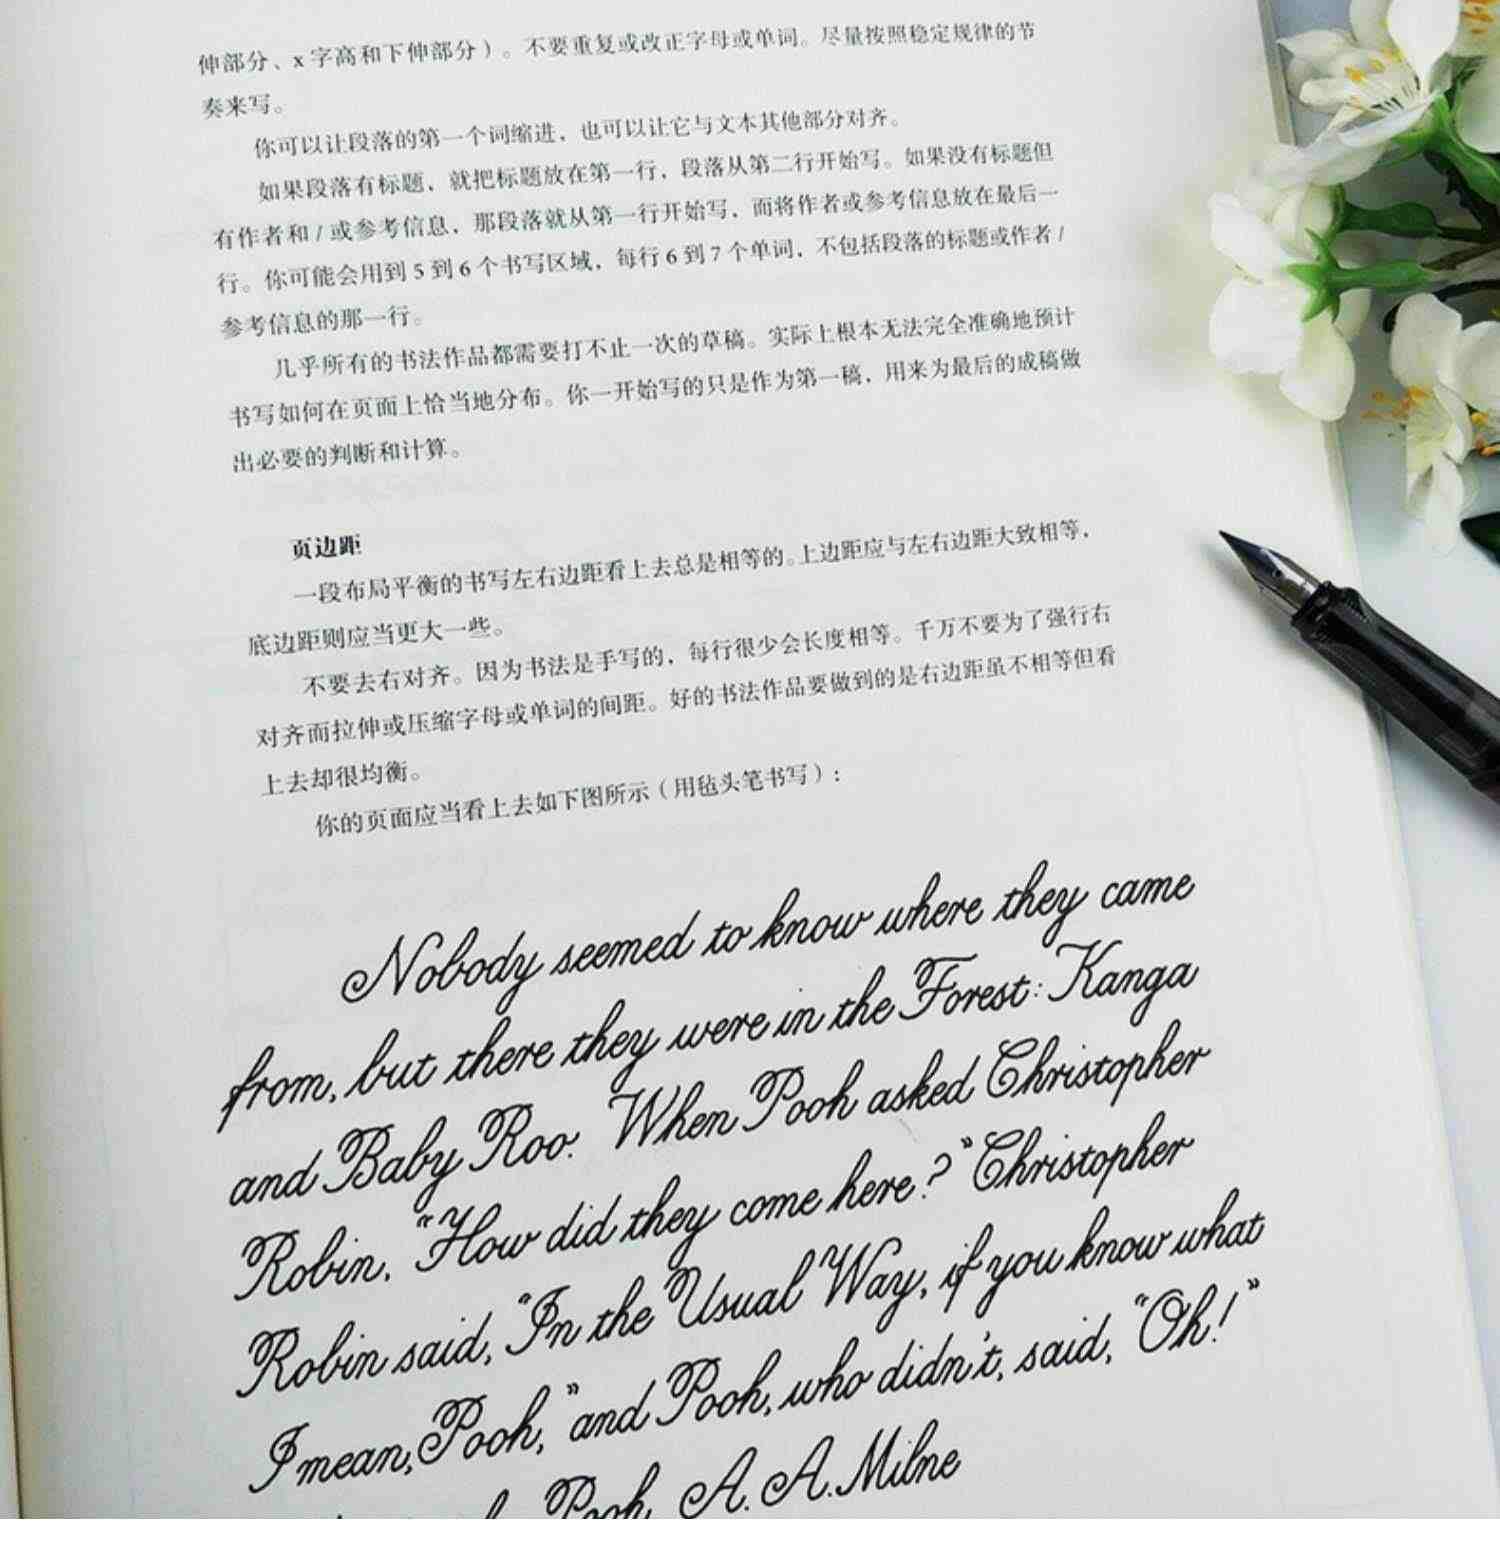 伸部分、x 字高和下伸部分）。不要重复或改正字母或单词。尽量按照稳定规律的节
奏来写。
你可以让段落的第一个词缩进，也可以让它与文本其他部分对齐。
如果段落有标题，就把标题放在第一行，段落从第二行开始写。如果没有标题但
有作者和 / 或参考信息，那段落就从第一行开始写，而将作者或参考信息放在最后一
行。你可能会用到 5 到 6 个书写区域，每行 6 到 7 个单词，不包括段落的标题或作者 /
参考信息的那一行。
几乎所有的书法作品都需要打不止一次的草稿。实际上根本无法完全准确地预计
书写如何在页面上恰当地分布。你一开始写的只是作为第一稿，用来为最后的成稿做
出必要的判断和计算。
页边距
一段布局平衡的书写左右边距看上去总是相等的。上边距应与左右边距大致相等，
底边距则应当更大一些。
不要去右对齐。因为书法是手写的，每行很少会长度相等。千万不要为了强行右
对齐而拉伸或压缩字母或单词的间距。好的书法作品要做到的是右边距虽不相等但看
上去却很均衡。
你的页面应当看上去如下图所示（用毡头笔书写）：
Nobody seemed to know where they came
from, but there they were in the Forest: Kanga
and Baby Roo. When Pooh asked Christopher
Robin, "How did they come here?" Christopher
Robin said, "In the Usual Way, if you know what
I mean, Pooh," and Pooh, who didn't, said, "Oh!"
Pooh, A. A. Milne